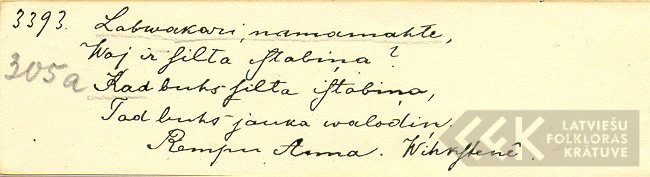 3393. Labwakari, namamahte,
Waj ir silta istabiņa?
305a
Kad buhs silta istabiņa,
Tad buhs jauka walodiņ.
Rempu Anna. Wihkstenē.
LATVIEŠU
FOLKLORAS
KRĀTUVE